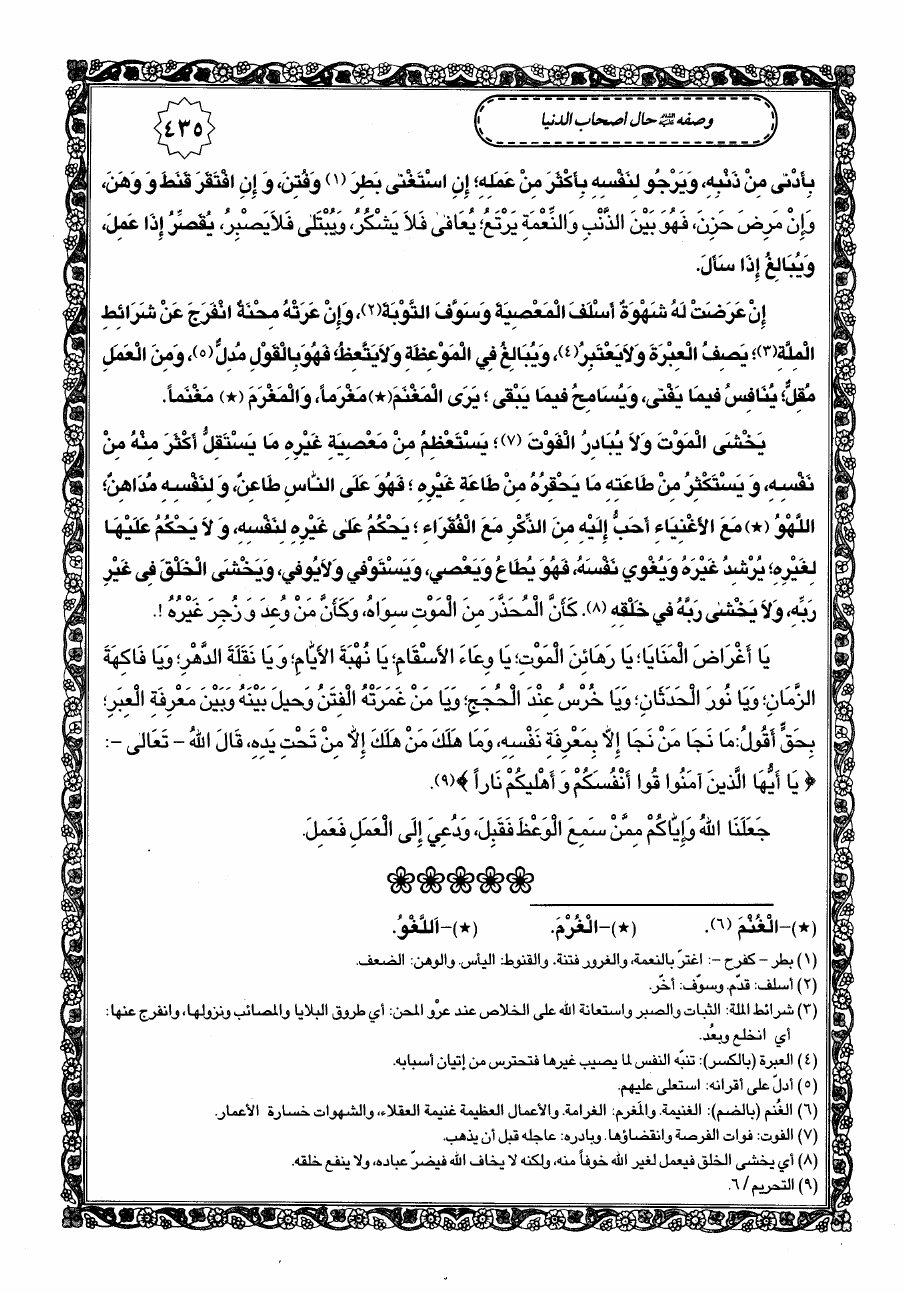 وصفه ﷺ حال أصحاب الدنيا
٤٣٥
بِأَدْنى مِنْ ذَنْبِهِ، وَيَرْجُو لِنَفْسِهِ بِأَكْثَرَ مِنْ عَمَلِهِ؛ إِنِ اسْتَغْنى بَطِرَ (١) وَفُتِنَ، وَ إِنِ افْتَقَرَ قَنَطَ وَ وَهَنَ،
وَإِنْ مَرِضَ حَزِنَ، فَهُوَ بَيْنَ الذَّنْبِ وَالنِّعْمَةِ يَرْتَعُ؛ يُعَافىٰ فَلاَ يَشْكُرُ، وَيُبْتَلىٰ فَلاَيَصْبِرُ، يُقَصِّرُ إِذَا عَمِلَ،
وَيُبَالِغُ إِذَا سَأَلَ.
إِنْ عَرَضَتْ لَهُ شَهْوَةٌ أَسْلَفَ الْمَعْصِيَةَ وَسَوَّفَ التَّوْبَةَ(٢)، وَإِنْ عَرَتْهُ مِحْنَةٌ انْفَرَجَ عَنْ شَرَائِطِ
الْمِلَّةِ(٣)؛ يَصِفُ الْعِبْرَةَ وَلاَيَعْتَبِرُ(٤)، وَيُبَالِغُ فِي الْمَوْعِظَةِ وَلاَيَتَّعِظُ؛ فَهُوَبِالْقَوْلِ مُدِلٌّ(٥)، وَمِنَ الْعَمَلِ
مُقِلٌّ؛ يُنَافِسُ فيمَا يَفْنى، وَيُسَامِحُ فيمَا يَبْقى ؛ يَرَى الْمَغْنَمَ(★)مَغْرَماً، وَالْمَغْرَمَ (★) مَغْنَماً.
يَخْشَى الْمَوْتَ وَلاَ يُبَادِرُ الْفَوْتَ (٧)؛ يَسْتَعْظِمُ مِنْ مَعْصِيَةِ غَيْرِهِ مَا يَسْتَقِلُّ أَكْثَرَ مِنْهُ مِنْ
نَفْسِهِ، وَ يَسْتَكْثِرُ مِنْ طَاعَتِهِ مَا يَحْقِرُهُ مِنْ طَاعَةِ غَيْرِهِ ؛ فَهُوَ عَلَى النَّاسِ طَاعِنٌ، وَ لِنَفْسِهِ مُدَاهِنٌ؛
اللَّهْوُ (★) مَعَ الأَغْنِيَاءِ أَحَبُّ إِلَيْهِ مِنَ الذِّكْرِ مَعَ الْفُقَرَاءِ ؛ يَحْكُمُ عَلى غَيْرِهِ لِنَفْسِهِ، وَ لاَ يَحْكُمُ عَلَيْهَا
لِغَيْرِهِ؛ يُرْشِدُ غَيْرَهُ وَيُغْوي نَفْسَهُ، فَهُوَ يُطَاعُ وَيَعْصي، وَيَسْتَوْفي وَلاَيُوفي، وَيَخْشَى الْخَلْقَ في غَيْرِ
رَبِّهِ، وَلاَ يَخْشى رَبَّهُ في خَلْقِهِ (٨). كَأَنَّ الْمُحَذَّرَ مِنَ الْمَوْتِ سِوَاهُ، وَكَأَنَّ مَنْ وُعِدَ وَ زُجِرَ غَيْرُهُ !.
يَا أَغْرَاضَ الْمَنَايَا؛ يَا رَهَائِنَ الْمَوْتِ؛ يَا وِعَاءَ الأَسْقَامِ؛ يَا نُهْبَةَ الأَيَّامِ؛ وَ يَا نَقَلَةَ الدَّهْرِ؛ وَيَا فَاكِهَةَ
الزَّمَانِ؛ وَيَا نُورَ الْحَدَثَانِ؛ وَيَا خُرْسُ عِنْدَ الْحُجَجِ؛ وَيَا مَنْ غَمَرَتْهُ الْفِتَنُ وَحيلَ بَيْنَهُ وَبَيْنَ مَعْرِفَةِ الْعِبَرِ؛
بِحَقٍّ أَقُولُ:مَا نَجَا مَنْ نَجَا إِلاَّ بِمَعْرِفَةِ نَفْسِهِ، وَمَا هَلَكَ مَنْ هَلَكَ إِلاَّ مِنْ تَحْتِ يَدِهِ، قَالَ اللهُ – تَعَالى –:
﴿ يَا أَيُّهَا الَّذينَ آمَنُوا قُوا أَنْفُسَكُمْ وَ أَهْليكُمْ نَاراً ﴾(٩).
جَعَلَنَا اللهُ وَإِيَّاكُمْ مِمَّنْ سَمِعَ الْوَعْظَ فَقَبِلَ، وَدُعِيَ إِلَى الْعَمَلِ فَعَمِلَ.
(★)–الْغُنْمَ (٦). (★)–الْغُرْمَ. (★)–اَللَّغْوُ.
(١) بطر – كفرح –: اغترّ بالنعمة، والغرور فتنة. والقنوط: اليأس. والوهن: الضعف.
(٢) أسلف: قدّم. وسوّف: أخّر.
(٣) شرائط الملة: الثبات والصبر واستعانة الله على الخلاص عند عرْو المحن: أي طروق البلايا والمصائب ونزولها، وانفرج عنها:
أي انخلع وبعُد.
(٤) العبرة (بالكسر): تنبّه النفس لما يصيب غيرها فتحترس من إتيان أسبابه.
(٥) أدلّ على أقرانه: استعلى عليهم.
(٦) الغُنم (بالضم): الغنيمة. والمَغرم: الغرامة. والأعمال العظيمة غنيمة العقلاء، والشهوات خسارة الأعمار.
(٧) الفوت: فوات الفرصة وانقضاؤها. وبادره: عاجله قبل أن يذهب.
(٨) أي يخشى الخلق فيعمل لغير الله خوفاً منه، ولكنه لا يخاف الله فيضرّ عباده، ولا ينفع خلقه.
(٩) التحريم / ٦.